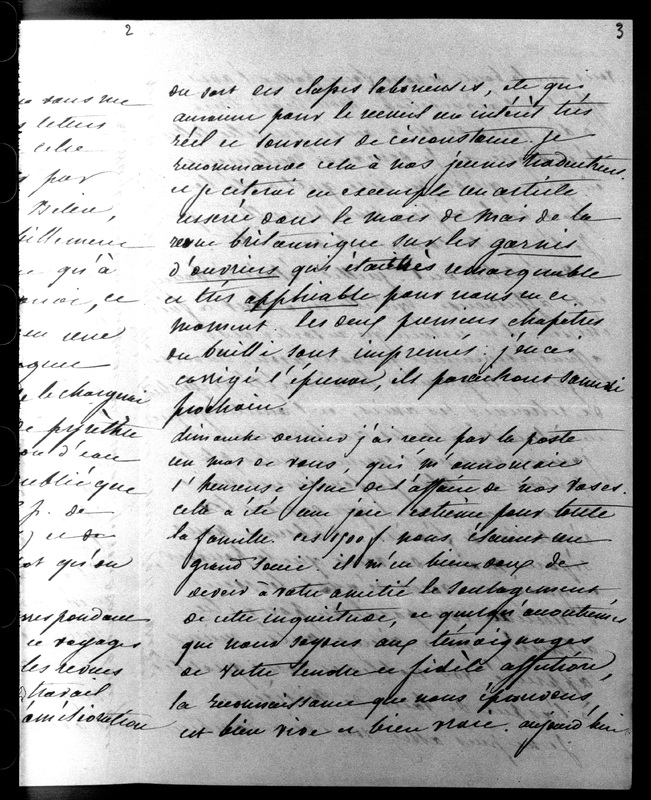 2
3
sans me
lettres
celui
par
Belin,
qu'à
ce
en une
le charger
de pyrèthre
d'eau
publié que
f. de
et de
qu'on
correspondance
voyages
les revues
travail
amélioration
du sort des classes laborieuses, etc. qui
auraient pour le recueil un intérêt très
réel et souvent de circonstance. Je
recommande cela à nos jeunes traducteurs.
et je citerai en exemple un article
inséré dans le mois de mai de la
revue britannique sur les garnis
d'ouvriers qui était très remarquable
et très applicable pour nous en ce
moment. Les deux premiers chapitres
du bailli sont imprimés : j'en ai
corrigé l'épreuve, ils paraîtront samedi
prochain.
dimanche dernier j'ai reçu par la poste
un mot de vous, qui m'annonçait
l'heureuse issue de l'affaire de nos vases.
cela a été une joie extrême pour toute
la famille. ces 1500 f nous étaient un
grand souci. il m'est bien doux de
devoir à votre amitié le soulagement
de cette inquiétude, et
que nous soyons aux témoignages
de votre tendre et fidèle affection,
la reconnaissance que nous éprouvons,
est bien vive et bien vraie. aujourd'hui